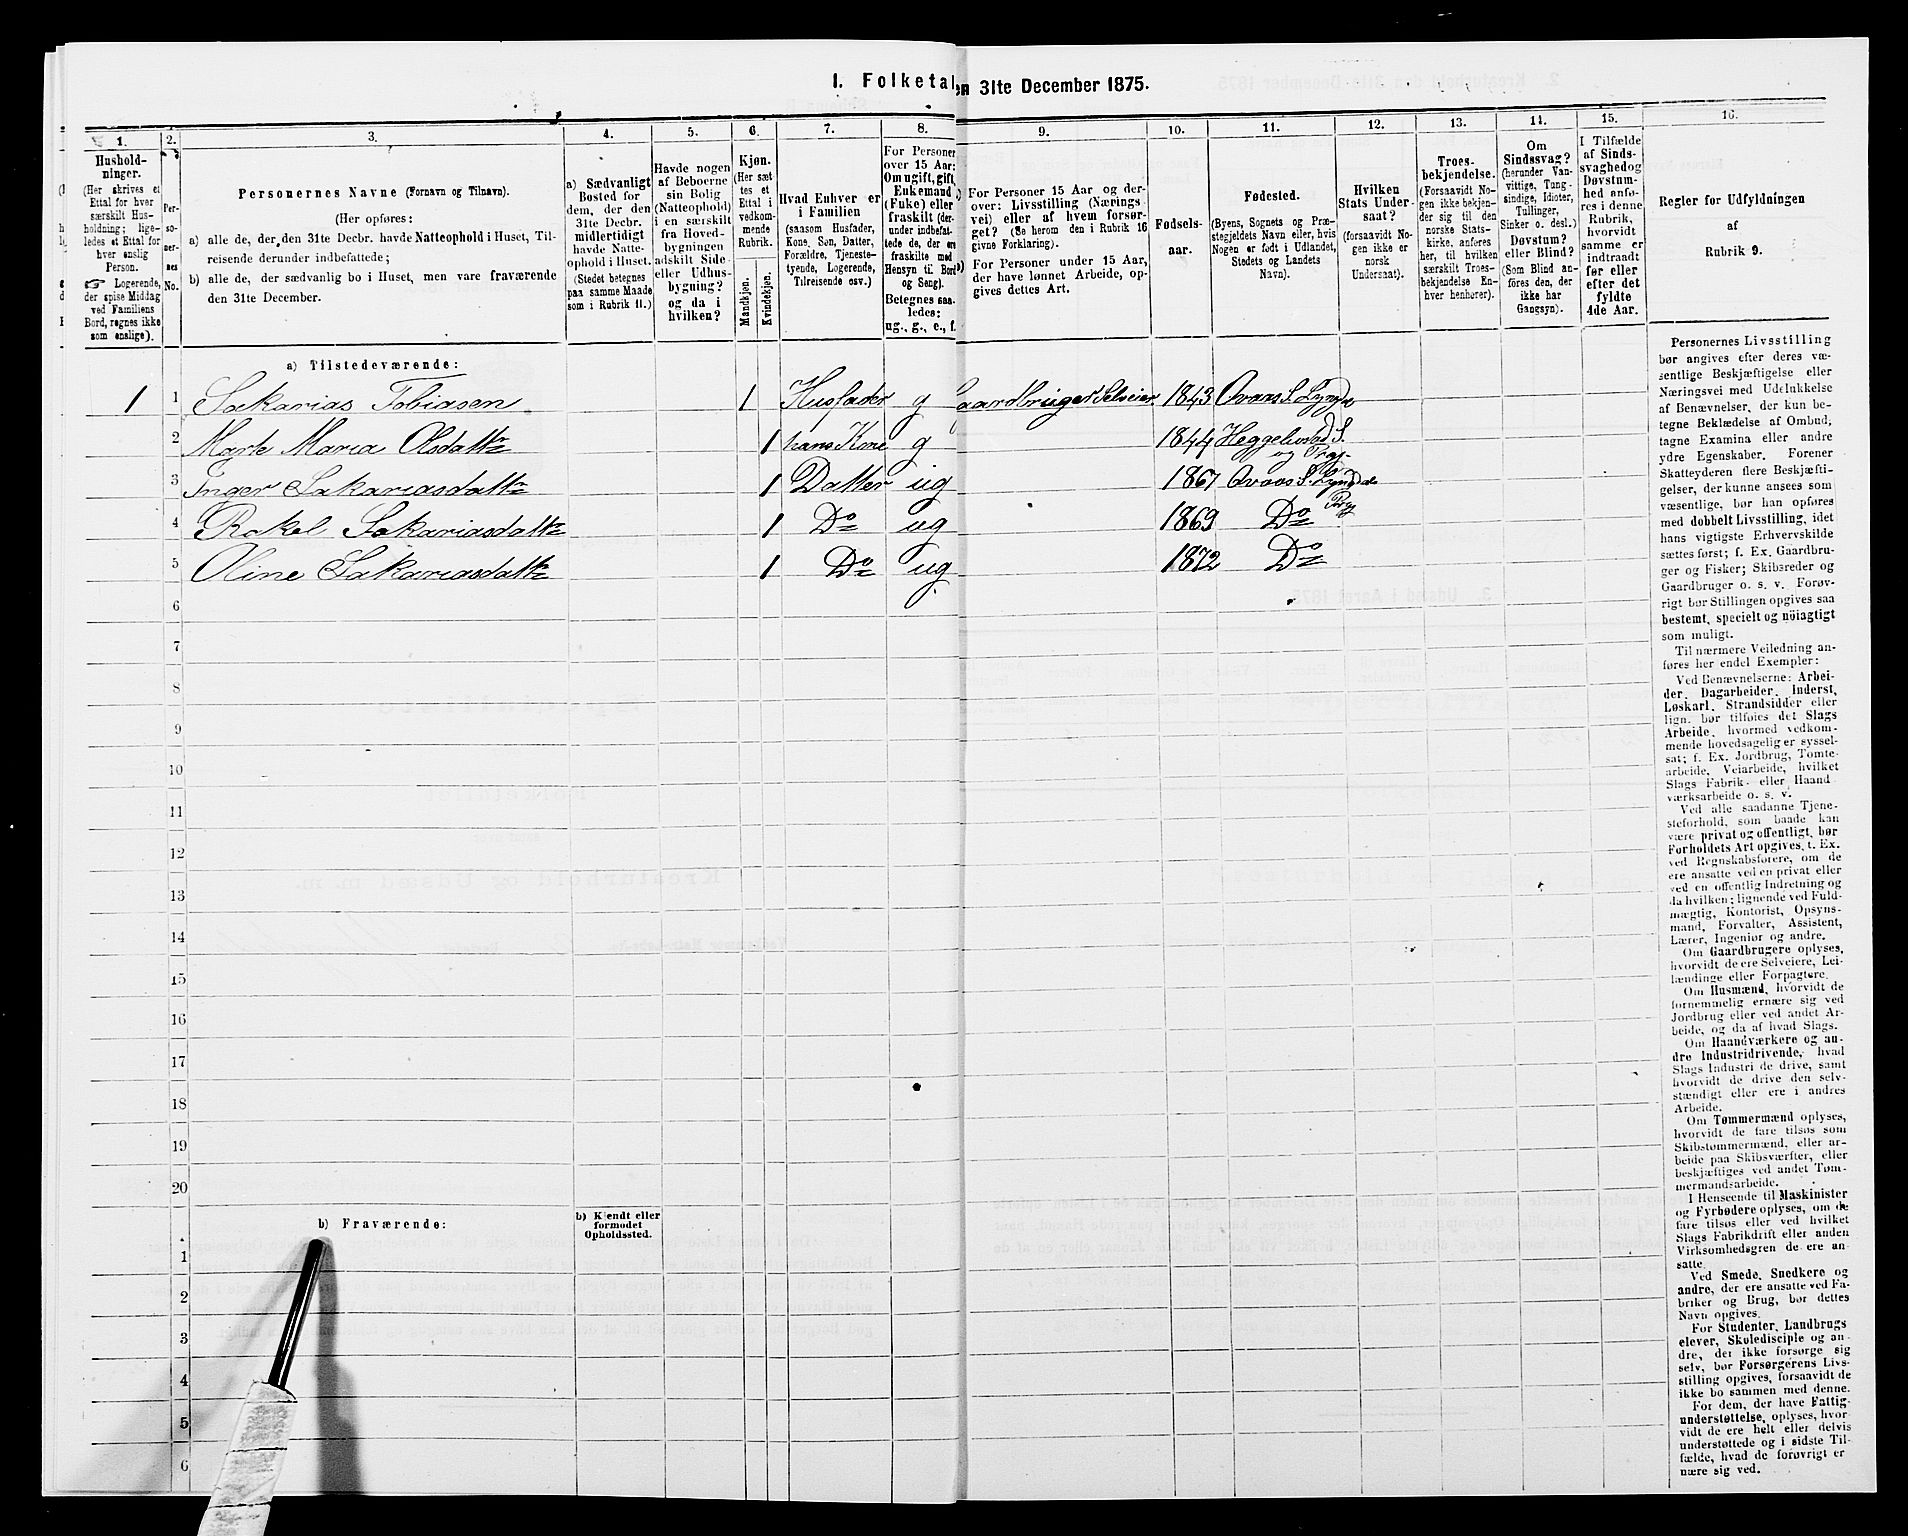 I. Folketal
en 31te December 1875.
1.
2.
3.
4.
5.
6.
7.
8.
9.
10.
11.
12.
13.
14.
15.
16.
Hushold-
ninger.
(Her skrives et
Ettal for hver
særskilt Hus-
holdning; lige-
ledes et Ettal for
hver enslig
Person.
☞ Logerende,
der spise Middag
ved Familiens
Bord, regnes ikke
som enslige).
Per-
so-
ner-
nes
No.
Personernes Navne (Fornavn og Tilnavn).
(Her opføres:
a) alle de, der den 31te Decbr. havde Natteophold i Huset, Til-
reisende derunder indbefattede;
b) alle de, der sædvanlig bo i Huset, men vare fraværende
den 31te December.
a) Sædvanligt
Bosted for
dem, der den
31te Decbr.
midlertidigt
havde Natte-
ophold i Huset.
(Stedet betegnes
paa samme Maade
som i Rubrik 11.)
Havde nogen
af Beboerne
sin Bolig
(Natteophold)
i en særskilt
fra Hoved-
bygningen
adskilt Side-
eller Udhus-
bygning?
og da i
hvilken?
Kjøn.
(Her sæt-
tes et
Ettal i
vedkom-
mende
Rubrik.
Mandkjøn.
Kvindekjøn.
Hvad Enhver er
i Familien
(saasom Husfader,
Kone, Søn, Datter,
Forældre, Tjeneste-
tyende, Logerende,
Tilreisende osv.)
For Personer
over 15 Aar:
Om ugift, gift,
Enkemand
(Enke) eller
fraskilt (der-
under indbefat-
tede de, der ere
fraskilte med
Hensyn til Bord
og Seng).
Betegnes saa-
ledes:
ug., g., e., f.
For Personer 15 Aar og der-
over: Livsstilling (Nærings-
vei) eller af hvem forsør-
get? (Se herom den i Rubrik 16
givne Forklaring).
For Personer under 15 Aar,
der have lønnet Arbeide, op-
gives dettes Art.
Fødsels-
aar.
Fødested.
(Byens, Sognets og Præ-
stegjeldets Navn eller, hvis
Nogen er født i Udlandet,
Stedets og Landets
Navn).
Hvilken
Stats Under-
saat?
(forsaavidt No-
gen ikke er
norsk
Undersaat).
Troes-
bekjendelse.
(Forsaavidt No-
gen ikke bekjen-
der sig til den
norske Stats-
kirke, anføres
her, til hvilken
særskilt Troes-
bekjendelse En-
hver henhører).
Om
Sindssvag?
(herunder Van-
vittige, Tung-
sindige, Idioter,
Tullinger,
Sinker o. desl.)
Døvstum?
eller Blind?
(Som Blind an-
føres den, der
ikke har
Gangsyn).
I Tilfælde
af Sinds-
svaghed og
Døvstum-
hed anfø-
res i denne
Rubrik,
hvorvidt
samme er
indtraadt
før eller
efter det
fyldte
4de Aar.
Regler for Udfyldningen
af
Rubrik 9.
a) Tilstedeværende:
1 1 Sakarias Tobiasen 1 Husfader g Gaardbruger Selveier 1843 Qvaas S. Lyngd.
2 Marte Maria Olsdattr 1 hans Kone g 1844 Heggebostad S.
og
3 Inger Sakariasdattr 1 Datter ug 1867 Qvaas S. Lyngdals
Prgj
4 Rakel Sakariasdattr 1 Do ug 1869 Do
5 Oline Sakariasdattr 1 Do ug 1872 Do
6
7
8
9
10
11
12
13
14
15
16
17
18
19
20
b) Fraværende:
b) Kjendt eller
formodet
Opholdssted.
1
2
3
4
5
6
Personernes Livsstilling
bør angives efter deres væ-
sentlige Beskjæftigelse eller
Næringsvei med Udelukkelse
af Benævnelser, der kun be-
tegne Beklædelse af Ombud,
tagne Examina eller andre
ydre Egenskaber. Forener
Skatteyderen flere Beskjæfti-
gelser, der kunne ansees som
væsentlige, bør han opføres
med dobbelt Livsstilling, idet
hans vigtigste Erhvervskilde
sættes først; f. Ex. Gaardbru-
ger og Fisker; Skibsreder og
Gaardbruger o. s. v. Forøv-
rigt bør Stillingen opgives saa
bestemt, specielt og nöiagtigt
som muligt.
Til nærmere Veiledning an-
føres her endel Exempler:
Ved Benævnelserne: Arbei-
der, Dagarbeider, Inderst,
Løskarl, Strandsidder eller
lign. bør tilføies det Slags
Arbeide, hvormed vedkom-
mende hovedsagelig er syssel-
sat; f. Ex. Jordbrug, Tomte-
arbeide, Veiarbeide, hvilket
Slags Fabrik- eller Haand-
værksarbeide o. s. v.
Ved alle saadanne Tjene-
steforhold, som baade kan
være privat og offentligt, bør
Forholdets Art opgives, t. Ex.
ved Regnskabsførere, om de
ere ansatte ved en privat eller
ved en offentlig Indretning og
da hvilken; lignende ved Fuld-
mægtig, Kontorist, Opsyns-
mand, Forvalter, Assistent,
Lærer, Ingeniør og andre.
Om Gaardbrugere oplyses,
hvorvidt de ere Selveiere, Lei-
lændinge eller Forpagtere.
Om Husmænd, hvorvidt de
fornemmelig ernære sig ved
Jordbrug eller ved andet Ar-
beide, og da af hvad Slags.
Om Haandværkere og an-
dre Industridrivende, hvad
Slags Industri de drive, samt
hvorvidt de drive den selv-
stændigt eller ere i andres
Arbeide.
Om Tømmermænd oplyses,
hvorvidt de fare tilsøs som
Skibstømmermænd, eller ar-
beide paa Skibsværfter, eller
beskjæftiges ved andet Tøm-
mermandsarbeide.
I Henseende til Maskinister
og Fyrbødere oplyses, om de
fare tilsøs eller ved hvilket
Slags Fabrikdrift eller anden
Virksomhedsgren de ere an-
satte.
Ved Smede, Snedkere og
andre, der ere ansatte ved Fa-
briker og Brug, bør dettes
Navn opgives.
For Studenter, Landbrugs-
elever, Skoledisciple og an-
dre, der ikke forsørge sig
selv, bør Forsørgerens Livs-
stilling opgives, forsaavidt de
ikke bo sammen med denne.
For dem, der have Fattig-
understøttelse, oplyses, hvor-
vidt de ere helt eller delvis
understøttede og i sidste Til-
fælde, hvad de forøvrigt er-
nære sig ved.